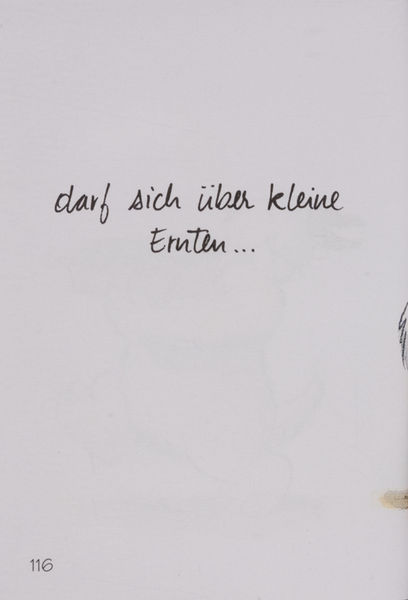 darf sich über kleine
Ernten...
116